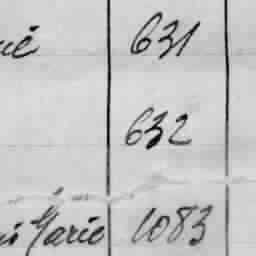 631
632
Marie 1083